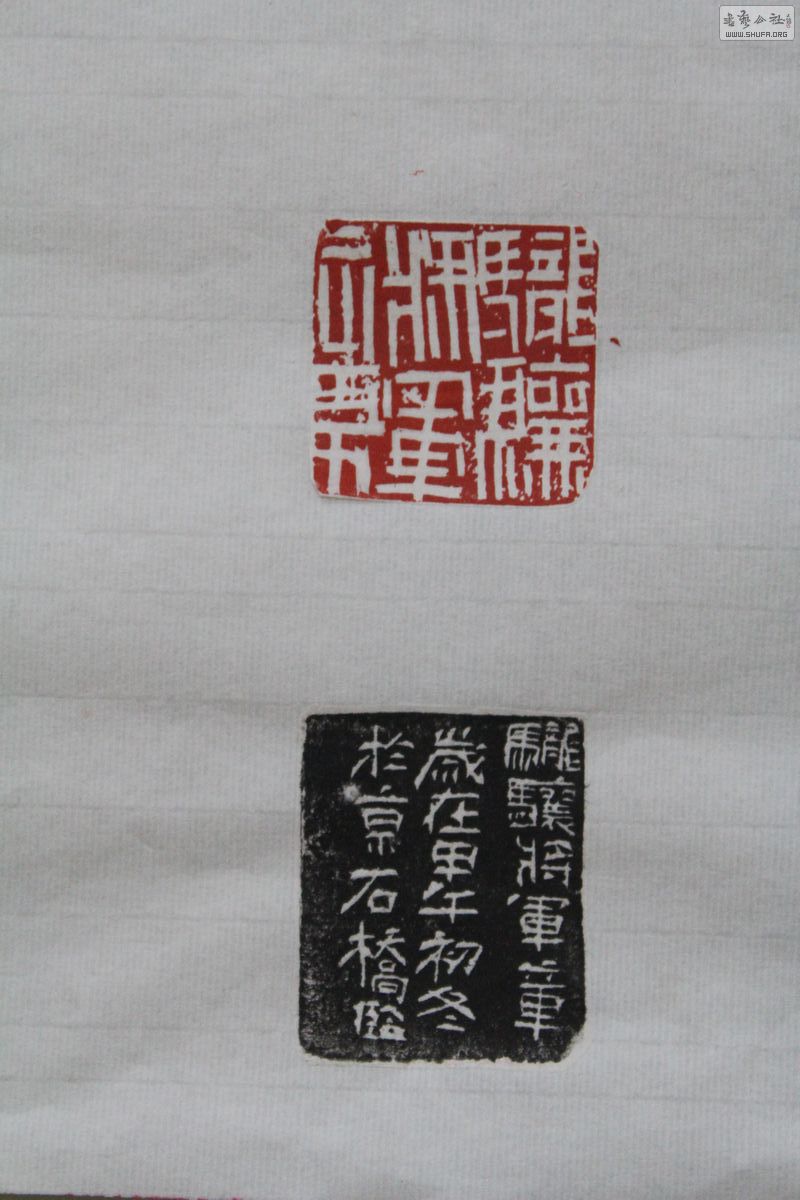 书艺公社
WWW.SHUFA.ORG
𩧪驤
將軍
章
𩧪驤將軍章
歲在甲午初冬
於京石橋臨